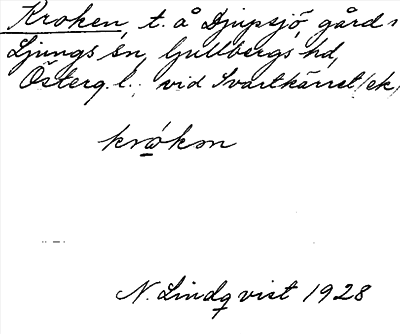 Kroken, t. å Djupsjö, gård i
Ljungs sn, Gullbergs hd,
Österg. l., vid Svartkärret (ek)
krokən
N. Lindqvist 1928